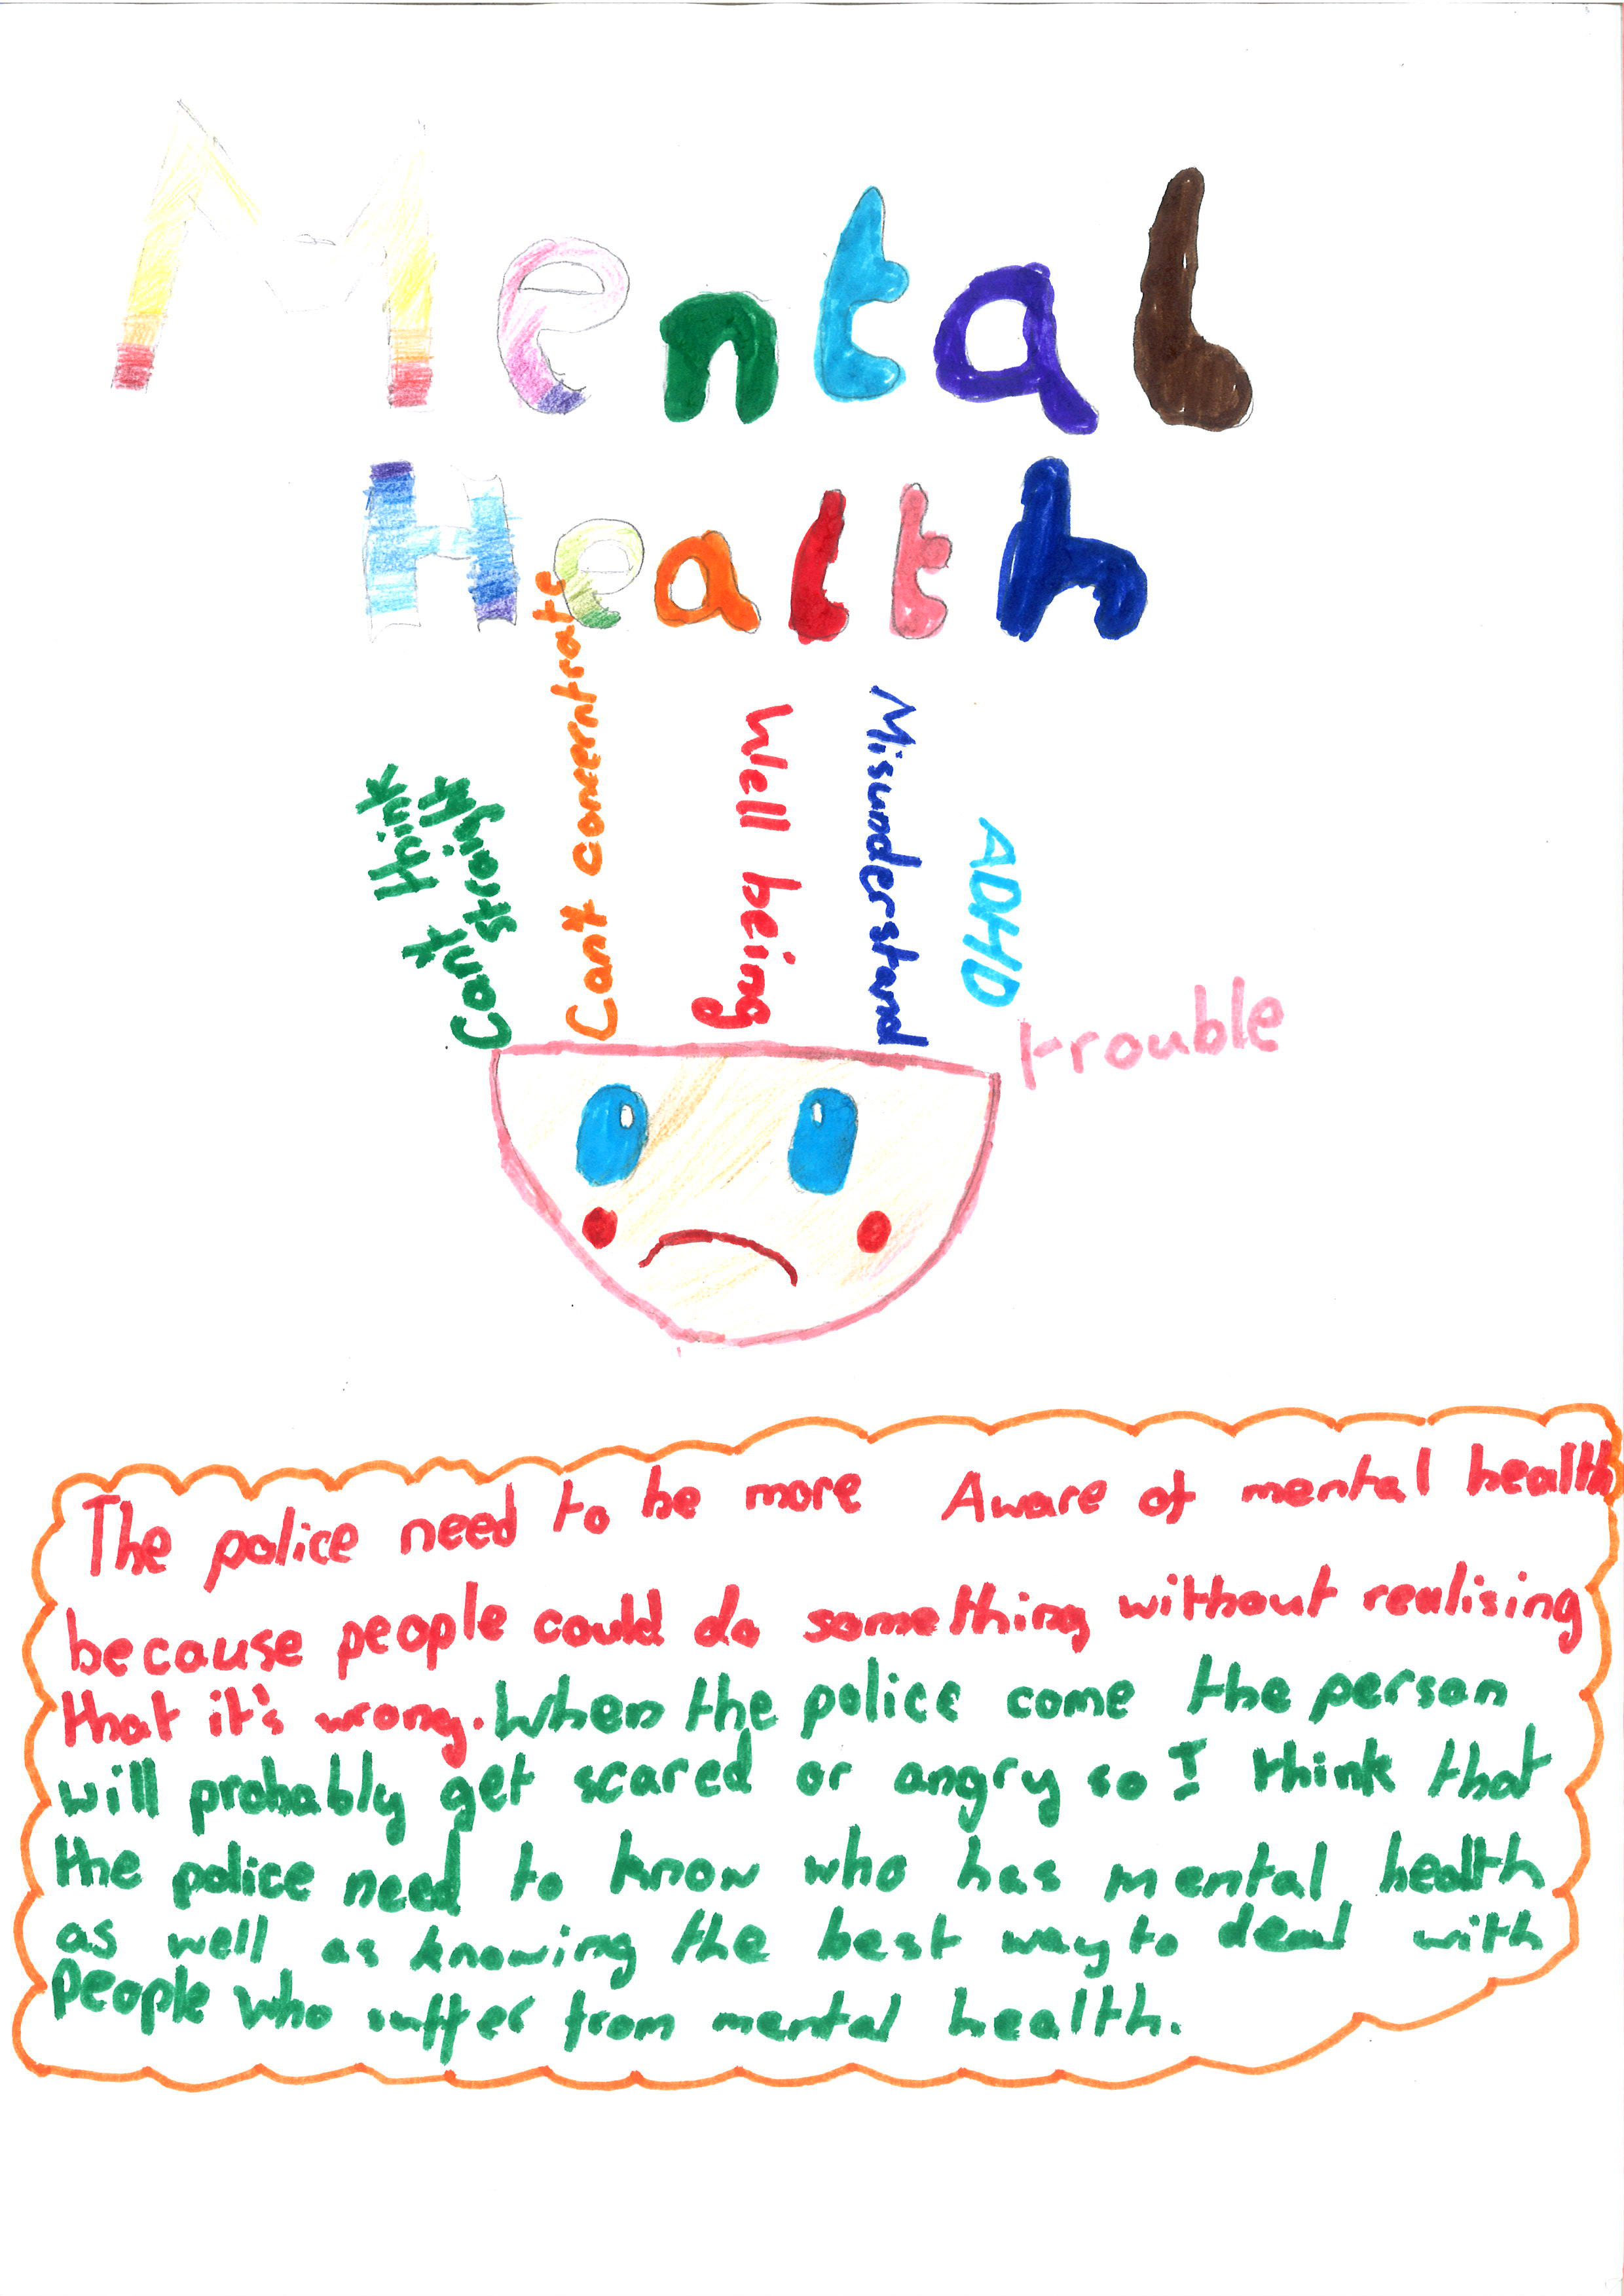 Mental
Health
Cant think
straight
Cant concerntrate
Well being
Misunderstand
ADHD
trouble
The police need to be more Aware of mental health
because people could do something without realising
that it's wrong. When the police come the person
will probably get scared or angry so I think that
the police need to know who has mental health
as well as knowing the best way to deal with
people who suffer from mental health.